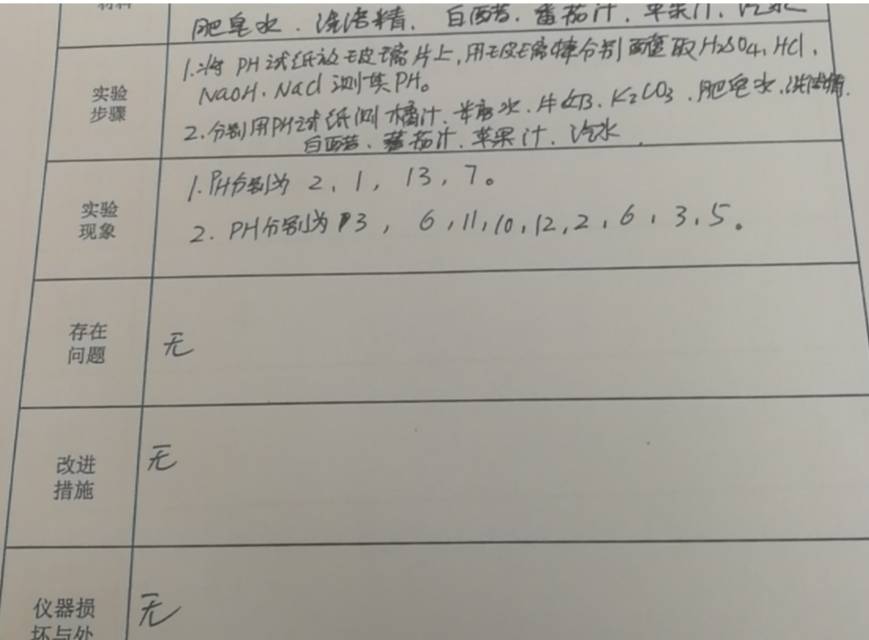 材料
肥皂水、洗洁精、白醋、番茄汁、苹果汁、汽水
实验
步骤
1.将PH试纸放玻璃片上,用玻璃棒分别蘸取H2SO4,HCl,
NaOH、NaCl测其PH。
2.分别用PH试纸测橘汁、、K2CO3、肥皂水、洗洁精、
白醋、番茄汁、苹果汁、汽水.
实验
现象
1.PH分别为 2, 1, 13, 7。
2. PH分别为 3, 6,11,10,12,2,6,3,5。
存在
问题
无
改进
措施
无
仪器损
坏与处
无